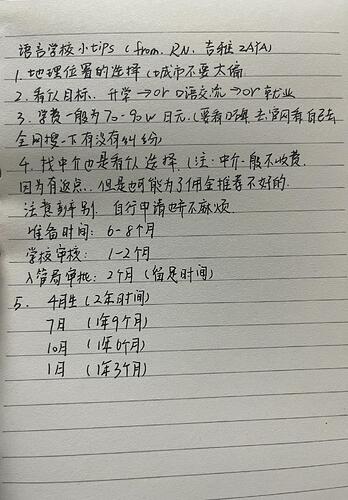 语言学校小tips (from. RN. 吉雅 ZAYA)
1. 地理位置的选择 (城市不要太偏
2. 看个人目标. 升学→or 口语交流→or 就业
3. 学费一般为70-90w日元. (要看口碑. 去官网看 自己去
全网搜一下有没有纠纷)
4. 找中介也是看个人选择. (注: 中介一般不收费.
因为有返点.. 但是也可能为了佣金推荐不好的.
注意 别. 自行申请也并不麻烦.
准备时间: 6-8个月
学校审核: 1-2个月
入管局审批: 2个月 (留足时间)
5. 4月生 (2年时间)
7月 (1年9个月)
10月 (1年6个月)
1月 (1年3个月)